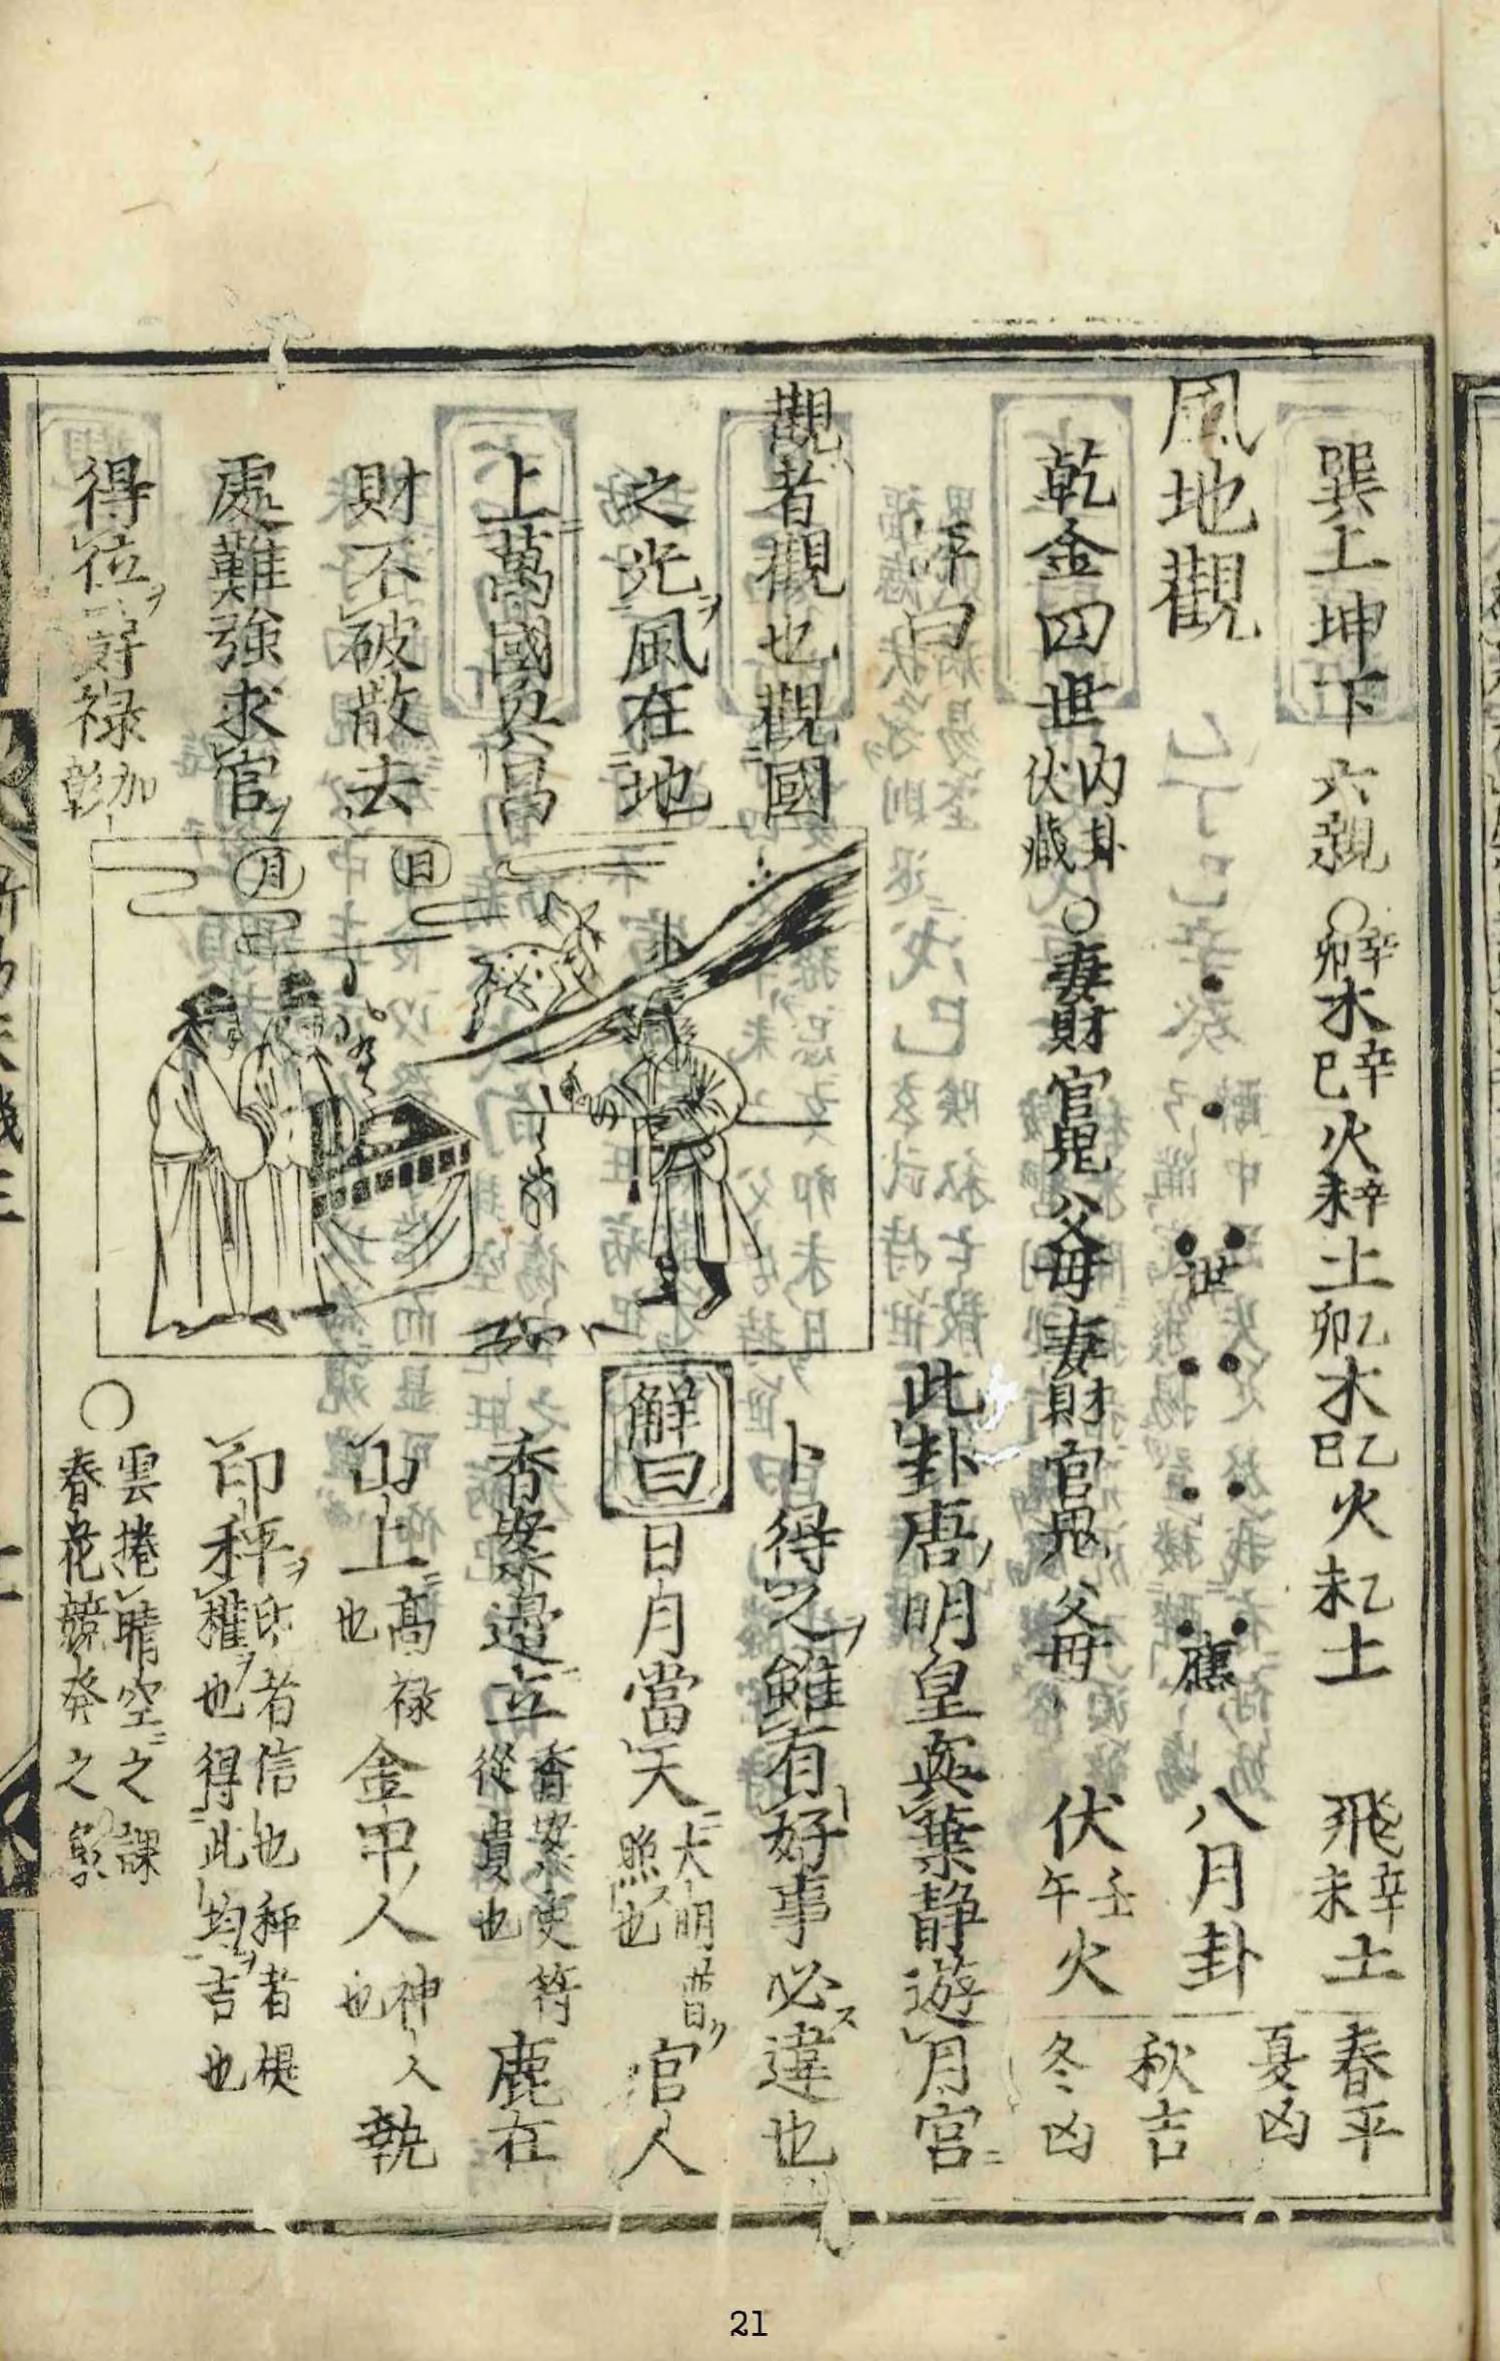 巽上坤下 六親 ○ 辛卯木 辛巳火 辛未土 乙卯木 乙巳火 乙未土 飛辛未土 春平
夏凶
風地觀 世 應 八月卦
秋吉
乾金四世 内卦伏藏 ○妻財 官鬼 父母 妻財 官鬼 父母 伏壬午火 冬凶
此卦唐明皇與葉静遊月宮ニ
卜得之ヲ雖有好事必ス違也
觀者觀也觀國
之光ヲ風在地
上ニ萬國與昌
財不破散去
處難強求官
得位ヲ好禄 加彰
月
日
解曰
日月當天ニ 大明普ク照ス也 官人
香案邉立 香案吏符從貴也 鹿在
山上 高禄也 金甲人 神人也 執
印秤ヲ 印者信也秤者 權ヲ也得此均ヲ吉也
○ 雲捲晴空ニ之課
春花競發之象
21